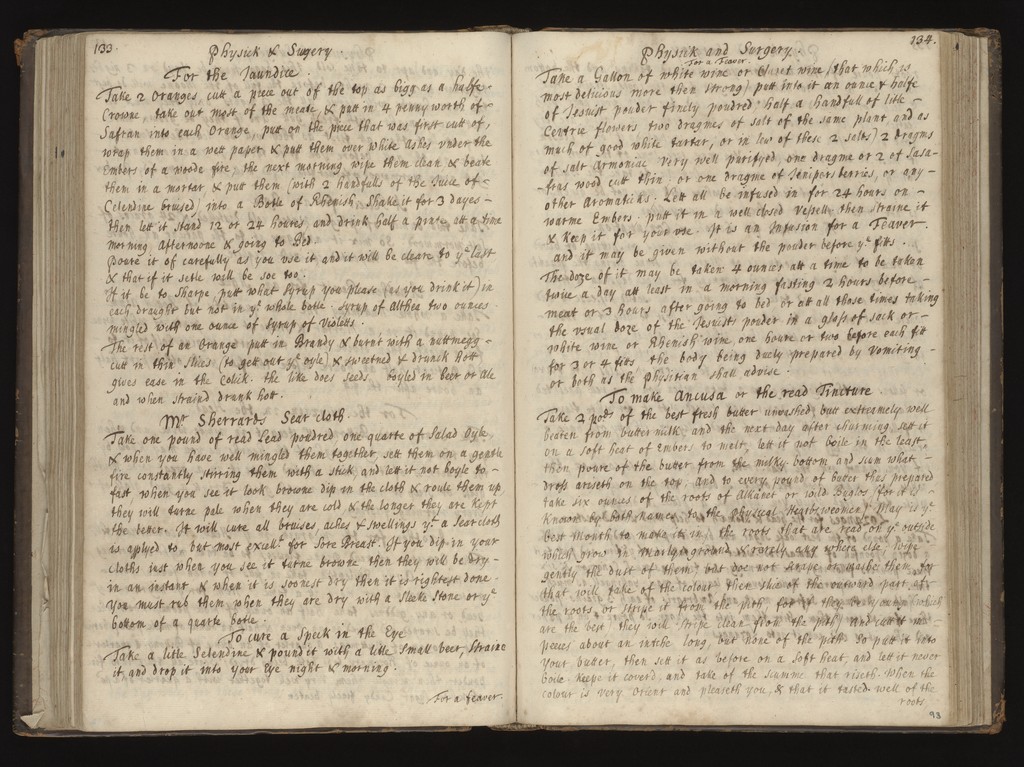 133.
Physick & Surgery.
For the Jaundice.
Take 2 Oranges, cutt a piece out of the top as bigg as a halfe-
Crowne, take out most of the meate, & putt in 4 penny worth of-
Safran into each Orange, putt on the piece that was first cutt of,
wrap them in a wett paper, & putt them over white Ashes under the
Embers of a woode fire, the next morning wipe them clean & beate
them in a mortar & putt them (with 2 handfulls of the Juice of-
Celendine bruised) into a Botle of Rhenish, Shake it for 3 dayes-
then lett it stand 12 or 24 houres, and drink half a pinte att a time
morning Afternoone & going to Bed.
Poure it of carefully as you use it, and it will be cleare to ye last
& that if it setle will be soe too.
If it be to Sharpe, putt what syrup you please (as you drink it) in
each draught but not in ye whole botle. Syrup of Althea two ounces
mingled with one ounce of Syrup of Violetts.
The rest of an Orange putt in Brandy & burnt with a nuttmegg-
cutt in thin Slices (to gett out ye oyle) & sweetned & drunck hott
gives ease in the Colick. the like does Seeds boyled in beer or Ale
and when straind drunk hott.
Mr Sherrards Sear cloth.
Take one pound of read Lead poudred, one quarte of Salad Oyle,
& when you have well mingled them together, sett them on a gentle
fire constantly stirring them with a stick, and lett it not boyle to-
fast when you see it look browne dip in the cloth & roule them up
they will turne pale when they are cold & the longer they are kept
the better. It will cure all bruises, aches & swellings yt a Sear cloth
is applyed to, but most excellt for Sore Breast. If you dip in your
Cloths just when you see it turne browne then they will be dry-
in an instant & when it is soonest dry then it is rightest done.
You must rub them when they are dry with a Sleeke Stone or ye
bottom of a quarte botle.
To cure a Speck in the Eye
Take a litle Selendine & pound it with a litle Small beer, Straine
it and drop it into your Eye night & morning.
For a feaver.
134.
Physick and Surgery.
For a Feaver.
Take a Gallon of white wine or Claret wine (that which is
most delicious more then strong) putt into it an ounce & halfe
of Jesuist pouder finely poudred, half a handfull of litle-
Centrie flowers two dragmes of salt of the same plant, and as
much of good white tartar, or in lew of these 2 salts) 2 dragms
of salt Armoniac very well purifyed, one dragme or 2 of Sasa-
-fras wood cutt thin. or one dragme of Junipers berries, or any-
other Aromaticks. Lett all be infused in for 24 hours on-
warme Embers. putt it in a well closed Vessell, then straine it
& keep it for your use. It is an Infusion for a Feaver.
and it may be given without the pouder before ye fitts.
The doze of it may be taken 4 ounces att a time to be taken
twice a day att least in a morning fasting 2 hours before-
meat or 3 hours after going to bed or att all those times taking
the usual doze of the Jesuists pouder in a glass of sack or-
white wine or Rhenish wine, one houre or two before each fitt
for 3 or 4 fitts, the body being duely prepared by Vomiting
or both as the Physitian shall advise.
To make Ancusa or the read Tincture
Take 2 pods of the best fresh butter unwashed, butt extreamely well
beaten from butter milk, and the next day after churning, sett it
on a soft heat of Embers to melt, lett it not boile in the least,
then poure of the butter from the milky bottom and scum what-
dross ariseth on the top, and to every pound of butter thus prepared
take six ounces of the roots of Alkanet or wild Buglos (for it is-
known by both names to the physical Hearbwomen) May is ye
best Month to make it in, the roots that are read on ye outside
which grow in Marly ground & rarely any where else, wipe
gently the dust of them, but doe not scrape or washe them, for
that will take of the colour, then slice of the outward part of
the roots, or stripe it from the pith, for if they be young which
are the best they will stripe clean from the pith, and cutt it in
peeces about an intche long, but none of the pith. So putt it into
your butter, then sett it as before on a Soft heat, and lett it never
boile. Keepe it coverd, and take of the scumme that riseth. When the
colour is very Orient and pleaseth you, & that it tasteth well of the
roots
93